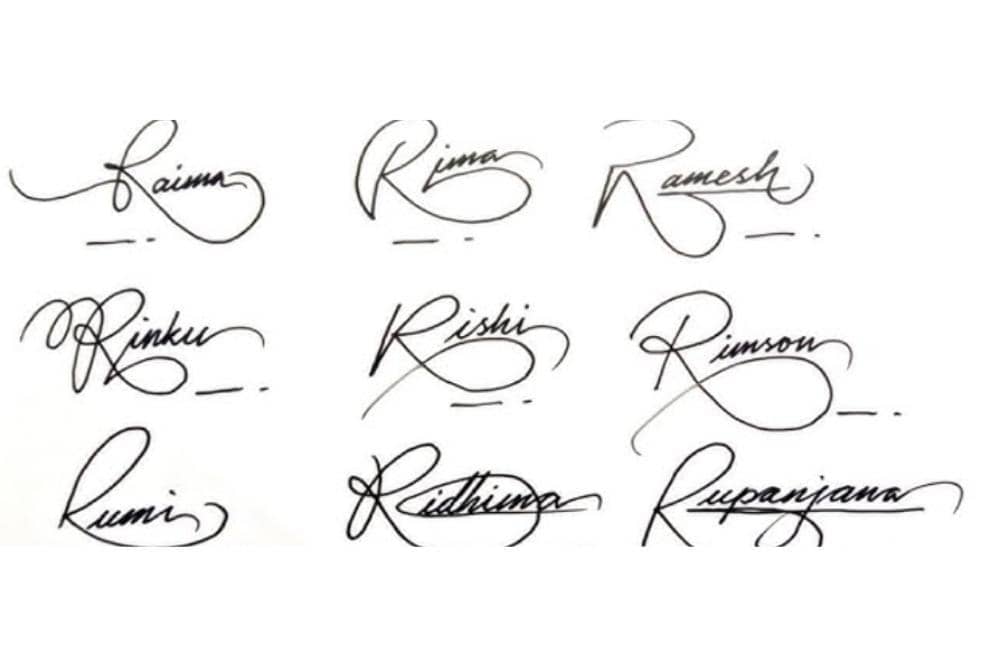 Raima Rima Ramesh
Rinku Rishi Rimson
Rumi Ridhima Rupanjana